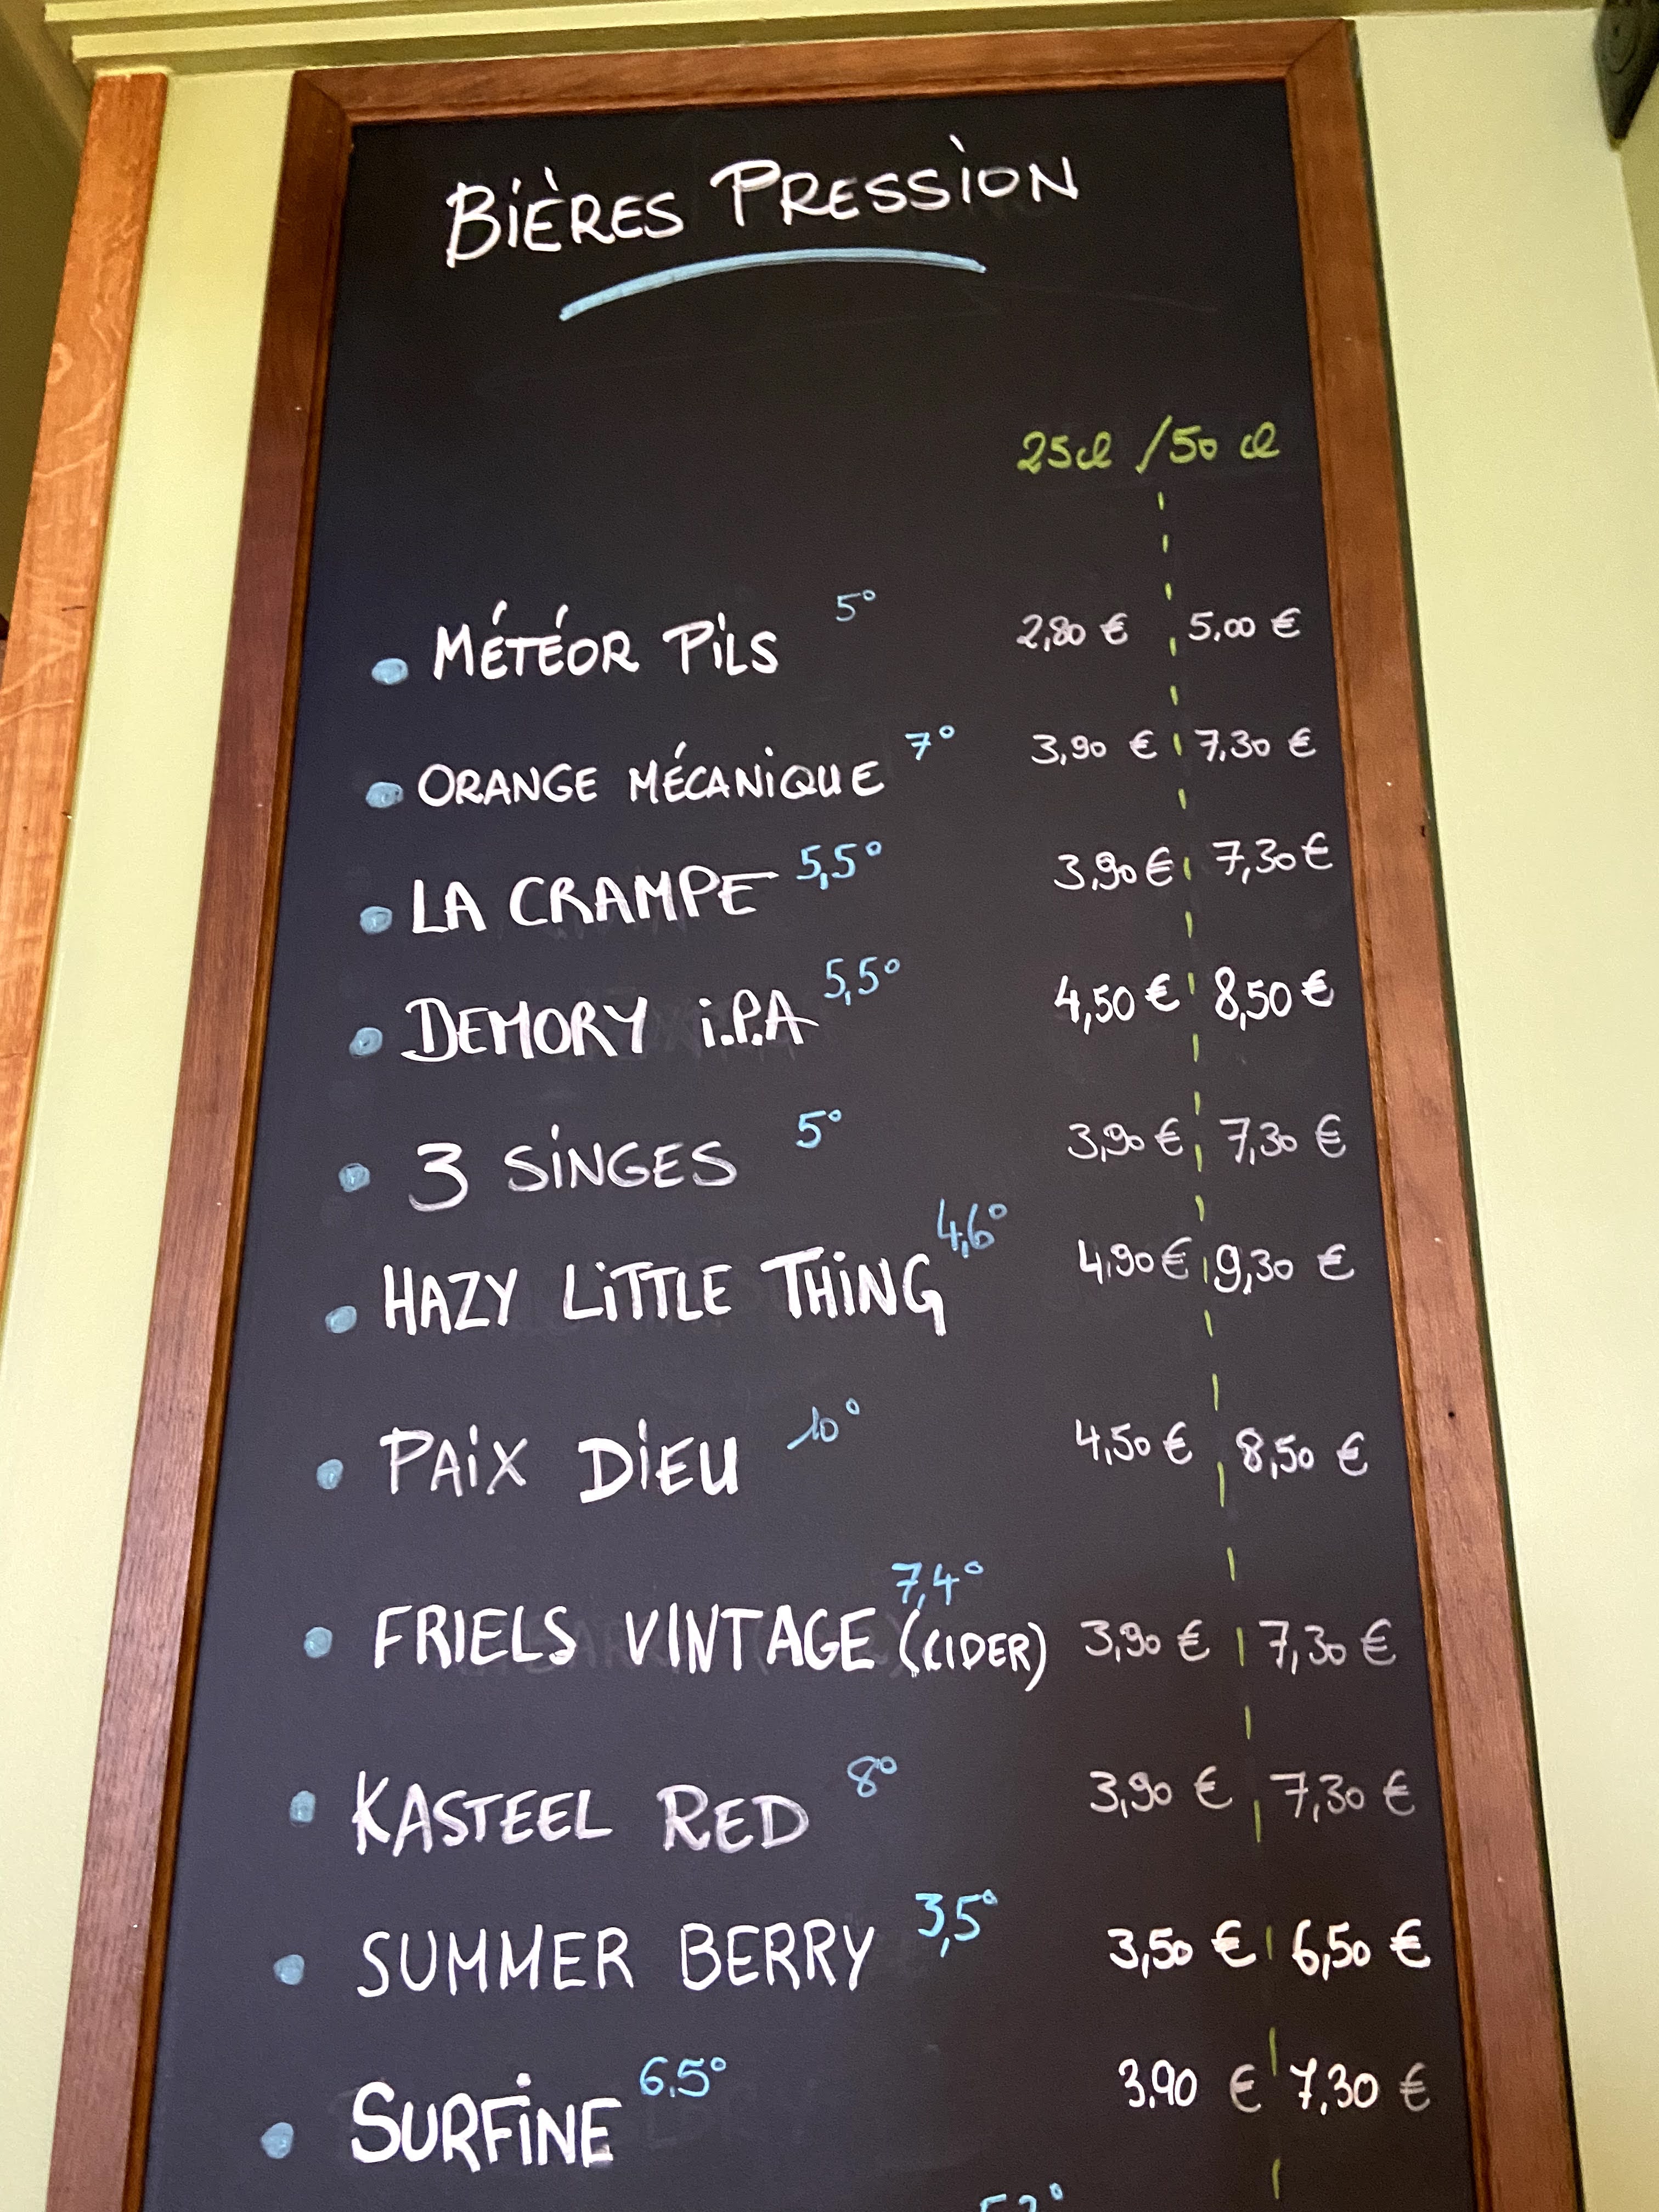 BIÈRES PRESSION
25cl / 50 cl
MÉTÉOR PILS 5° 2,80 € 5.00 €
ORANGE MÉCANIQUE 7° 3,90 € 7,30 €
LA CRAMPE 5,5° 3.90 € 7,30 €
DEMORY I.P.A 5,5° 4,50 € 8,50 €
3 SINGES 5° 3,90 € 7,30 €
HAZY LITTLE THING 4,6° 4,90 € 9,30 €
PAIX DIEU 10° 4,50 € 8,50 €
FRIELS VINTAGE (CIDER) 7,4° 3,90 € 7,30 €
KASTEEL RED 8° 3,90 € 7,30 €
SUMMER BERRY 3,5° 3,50 € 6,50 €
SURFINE 6.5° 3.90 € 7,30 €